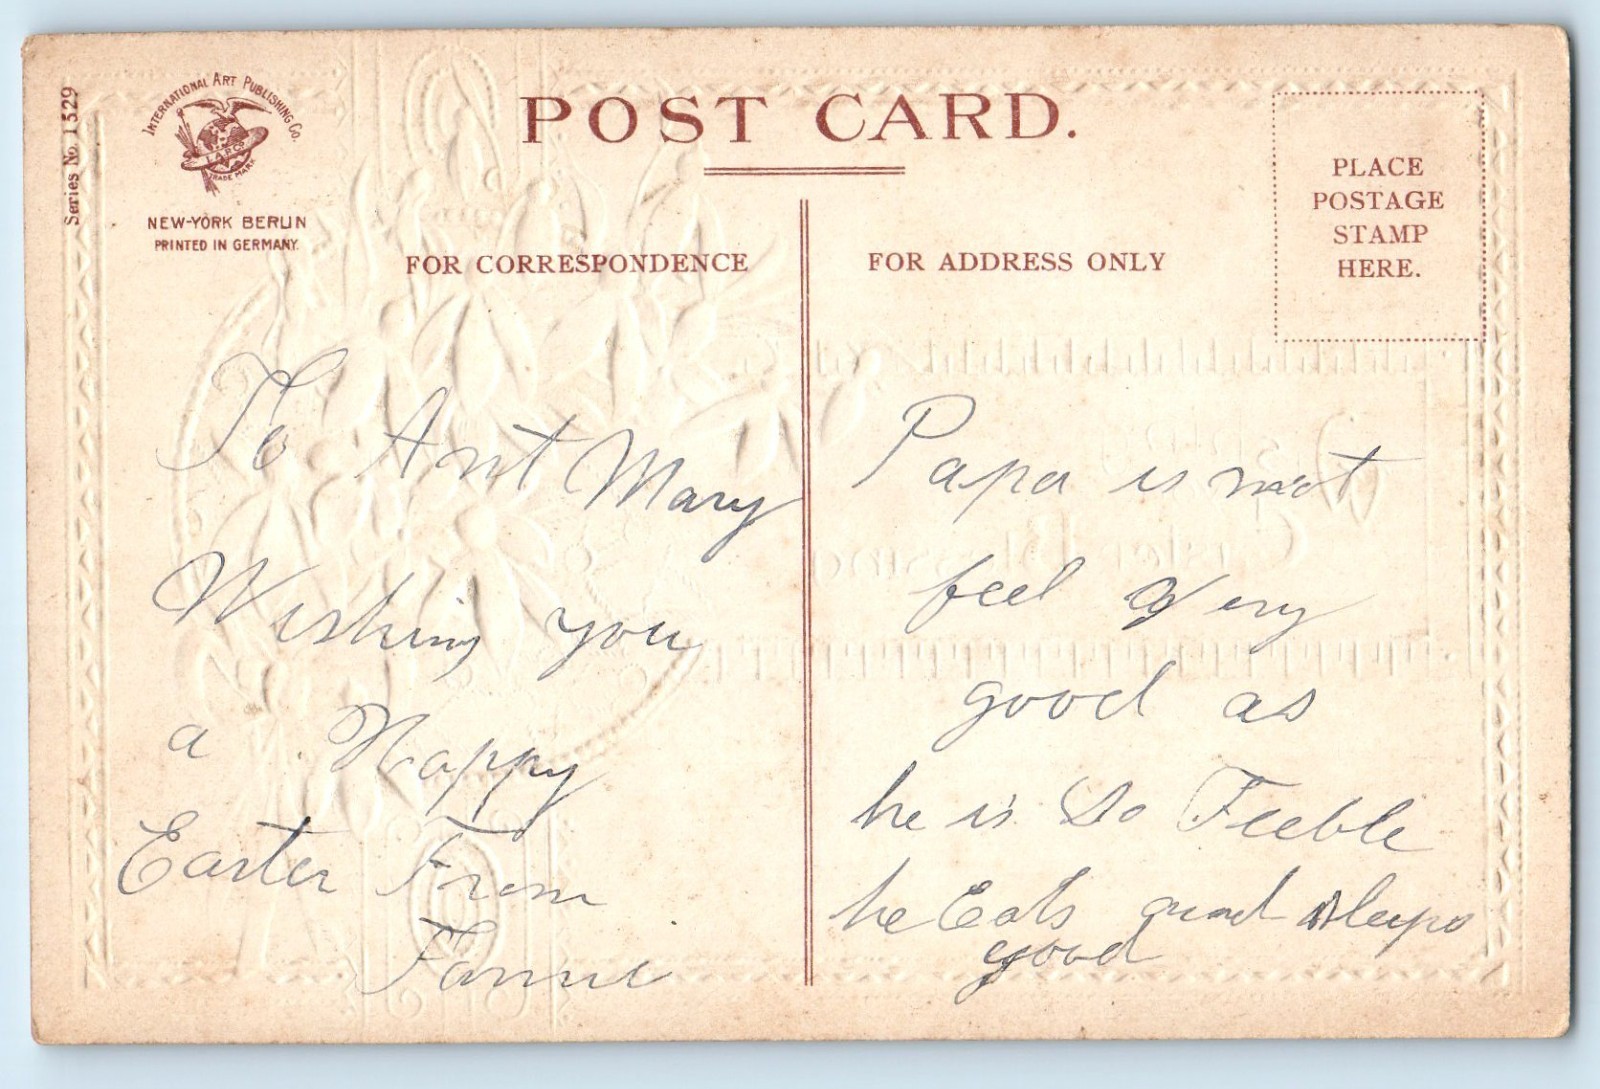 Series No. 1529
INTERNATIONAL ART PUBLISHING Co.
TRADE MARK
NEW-YORK BERLIN
PRINTED IN GERMANY.
POST CARD.
FOR CORRESPONDENCE
To Ant Mary
Wishing you
a Happy
Easter From
Fannie
FOR ADDRESS ONLY
PLACE
POSTAGE
STAMP
HERE.
Papa is not
feel Very
good as
he is So Feeble
he Eats and sleeps
good